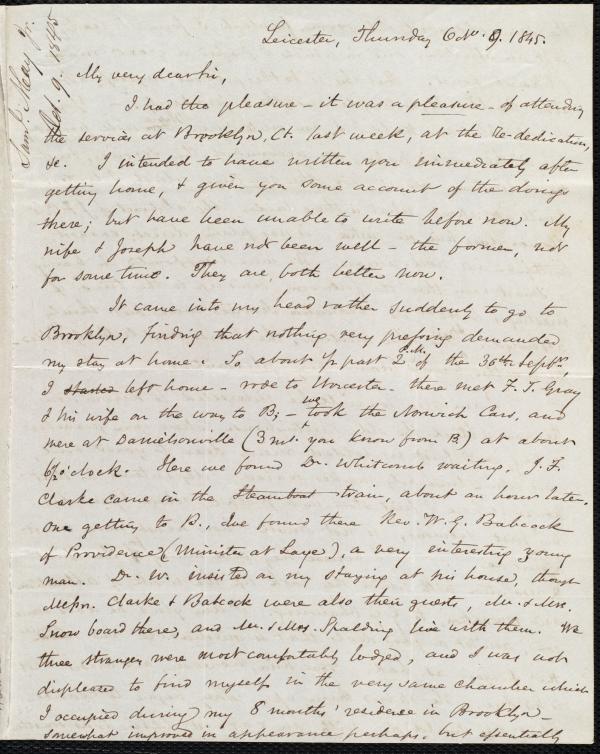 Saml. May Jr.
Oct. 9. 1845
Leicester, Thursday Octr. 9. 1845.
My very dear Sir,
I had the pleasure - it was a pleasure - of attending
the services at Brooklyn, Ct. last week, at the Re-dedication,
&c. I intended to have written you immediately after
getting home, & given you some account of the doings
there; but have been unable to write before now. My
wife & Joseph have not been well - the former, not
for some time. They are both better now.
It came into my head rather suddenly to go to
Brooklyn, finding that nothing very pressing demanded
my stay at home. So about ½ past 2 P.M. of the 30th Septr.,
I started left home - rode to Worcester - there met F. T. Gray
& his wife on the way to B; - we took the Norwich Cars, and
were at Danielsonville (3 ms. you know from B) at about
6½ o'clock. Here we found Dr. Whitcomb waiting. J. F.
Clarke came in the Steamboat train, about an hour later.
On getting to B., we found there Rev. W. G. Babcock
of Providence (Minister at Large), a very interesting young
man. Dr. W. insisted on my staying at his house, though
Messrs. Clarke & Babcock were also their guests, Mr. & Mrs.
Snow board there, and Mr. & Mrs. Spalding live with them. We
three strangers were most comfortably lodged, and I was not
displeased to find myself in the very same chamber which
I occupied during my 8 months' residence in Brooklyn -
somewhat improved in appearance perhaps, but essentially